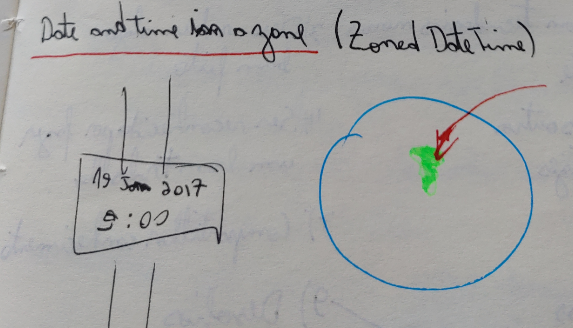 Date and time in a zone (Zoned DateTime)
19 Jan 2017
9:00